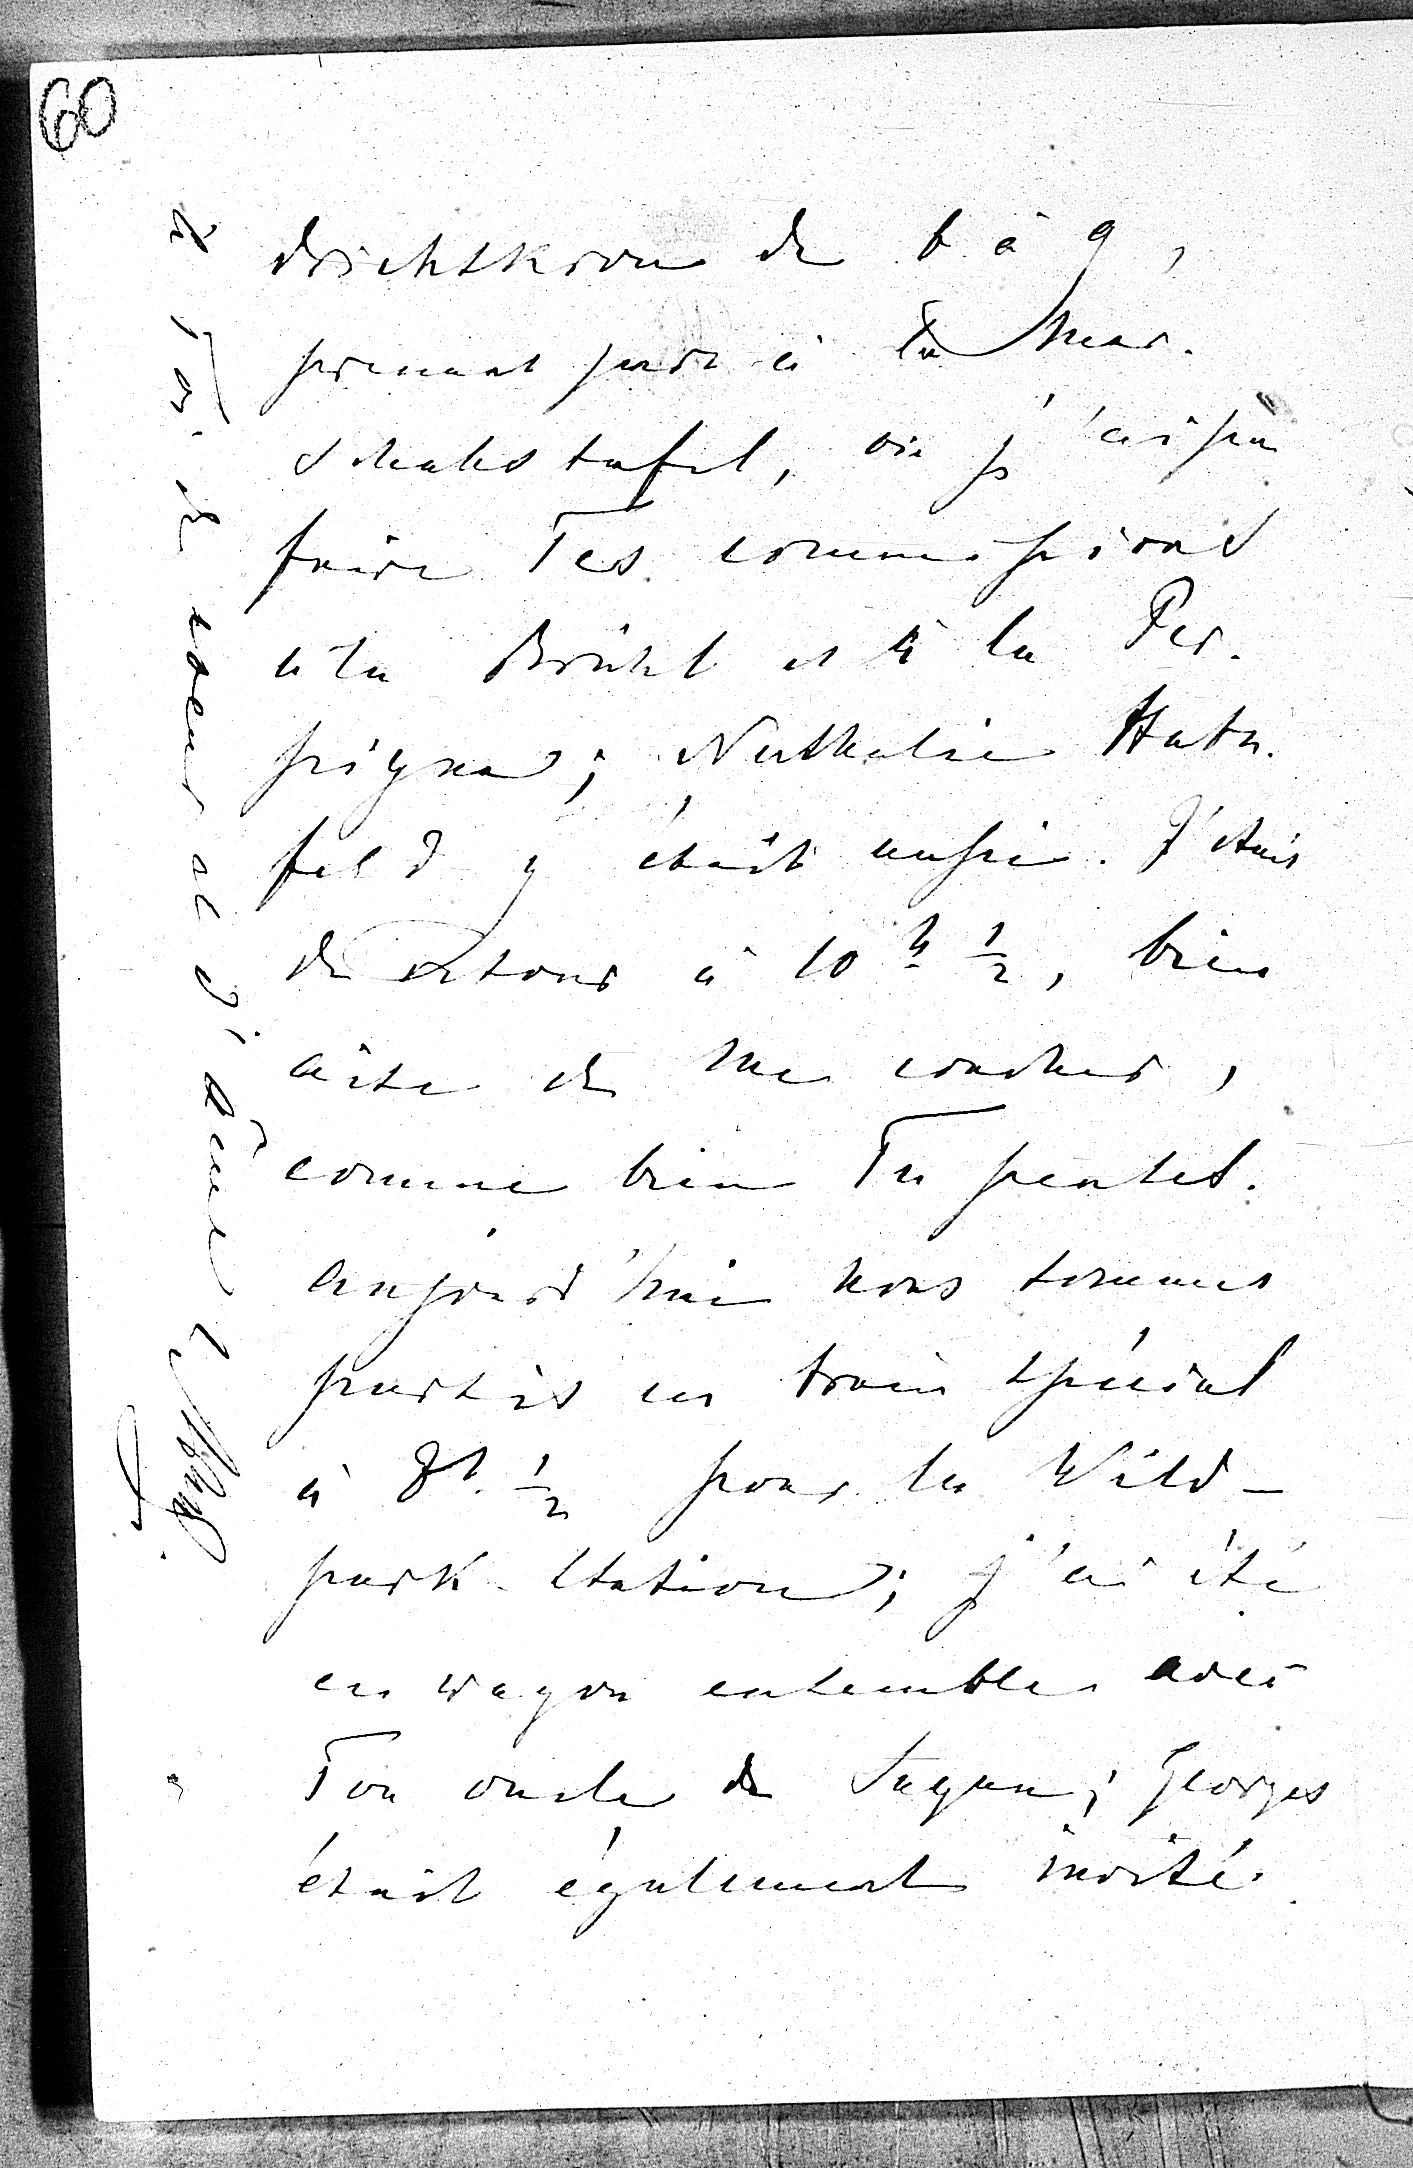 60
drichskron de 6 à 9,
prenant part à la Mar-
schalstafel, où j'ai pu
faire Tes commissions
à la Brühl et à la Per-
pigna; Nathalie Hatz-
feld y était aussi. J'étais
de retour à 10 h 1/2, bien
aise de me coucher,
comme bien Tu penses.
Aujourd'hui nous sommes
partis en train spécial
à 8 h. 1/2 pour la Wild-
park-Station; j'ai été
en wagon ensemble avec
Ton oncle de Sagan; Georges
était également invité.
à Toi de coeur et d'âme